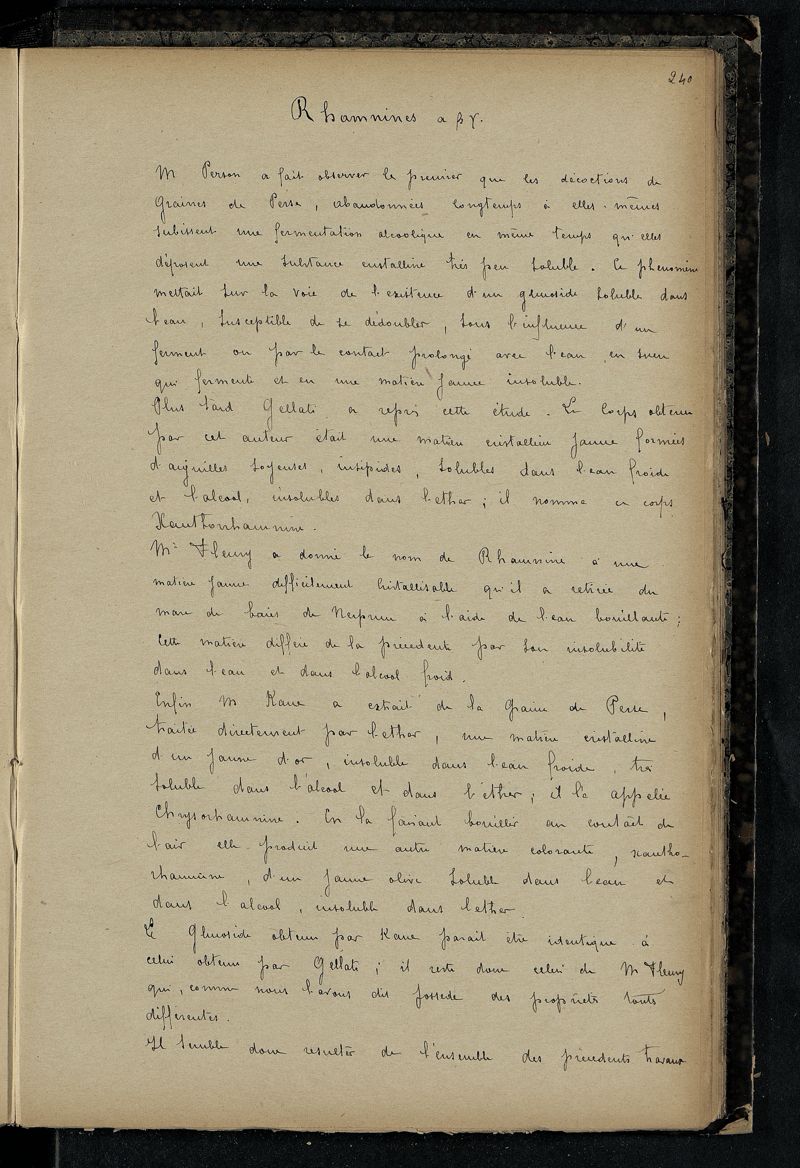 240
Rhamnines α β γ.
M Person a fait observer le premier que les décoctions de
Graines de Perse, abandonnées longtemps à elles-mêmes
subissent une fermentation alcoolique en même temps qu'elles
déposent une substance cristalline très peu soluble. Ce phénomène
mettait sur la voie de l'existence d'un glucoside soluble dans
l'eau, susceptible de se dédoubler, sous l'influence d'un
ferment ou par le contact prolongé avec l'eau, en sucre
qui fermente et en une matière jaune insoluble.
Plus tard Gellati a repris cette étude. Le Corps obtenu
par cet auteur était une matière cristalline jaune formées
d'aiguilles soyeuses, insipides, solubles dans l'eau froide
et l'alcool, insolubles dans l'ether; il nomme ce corps
Xanthorhamnine.
Mr Fleury a donné le nom de Rhamnine à une
matière jaune difficilement cristallisable qu'il a retirée du
marc de baies de Nerprun à l'aide de l'eau bouillante;
Cette matière diffère de la précédente par son insolubilité
dans l'eau et dans l'alcool froid.
Enfin M Kane a extrait de la Graine de Perse,
traitée directement par l'ether, une matière cristalline
d'un jaune d'or, insoluble dans l'eau froide, très
soluble dans l'alcool et dans l'éther; il l'a appelée
Chrysorhamnine. En la faisant bouillir au contact de
l'air elle produit une autre matière colorante, xantho-
rhamnine, d'un jaune olive soluble dans l'eau et
dans l'alcool, insoluble dans l'ether.
Le Glucoside obtenu par Kane parait être identique à
celui obtenu par Gellati; il reste donc celui de M Fleury
qui, comme nous l'avons dit possède des propriétés toutes
différentes.
Il semble donc résulter de l'ensemble des précédents travaux